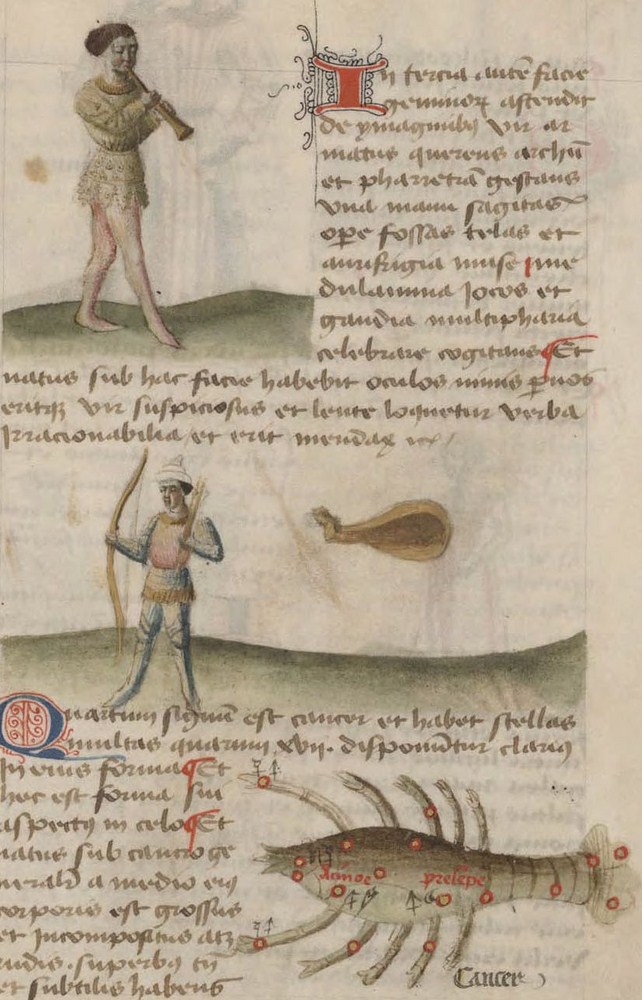 In tercia autē facie
geminorꝝ ascendit
de ymaginibꝯ vir ar
matus querens archū
et pharretrā gestans
vna manu sagitas
ope fossas telas et
aurifrigia
dulamina Jocos et
gaudia multipharia
celebrare cogitans Et
natus sub hac facie habebit oculos
eritqꝫ vir suspiciosus et lente loquetur verba
Irracionabilia et erit mendax
Quartum signū est cancer et habet stellas
multas quarum xvii. disponūtur clariꝯ
In eius forma Et
hec est forma sui
aspectꝯ in celo Et
natus sub cancro ge
a medio eiꝯ
corporis est grossus
et Incompositus atqꝫ
rudis . superbꝯ tn̄
et subtilis habens
presepe
Cancer